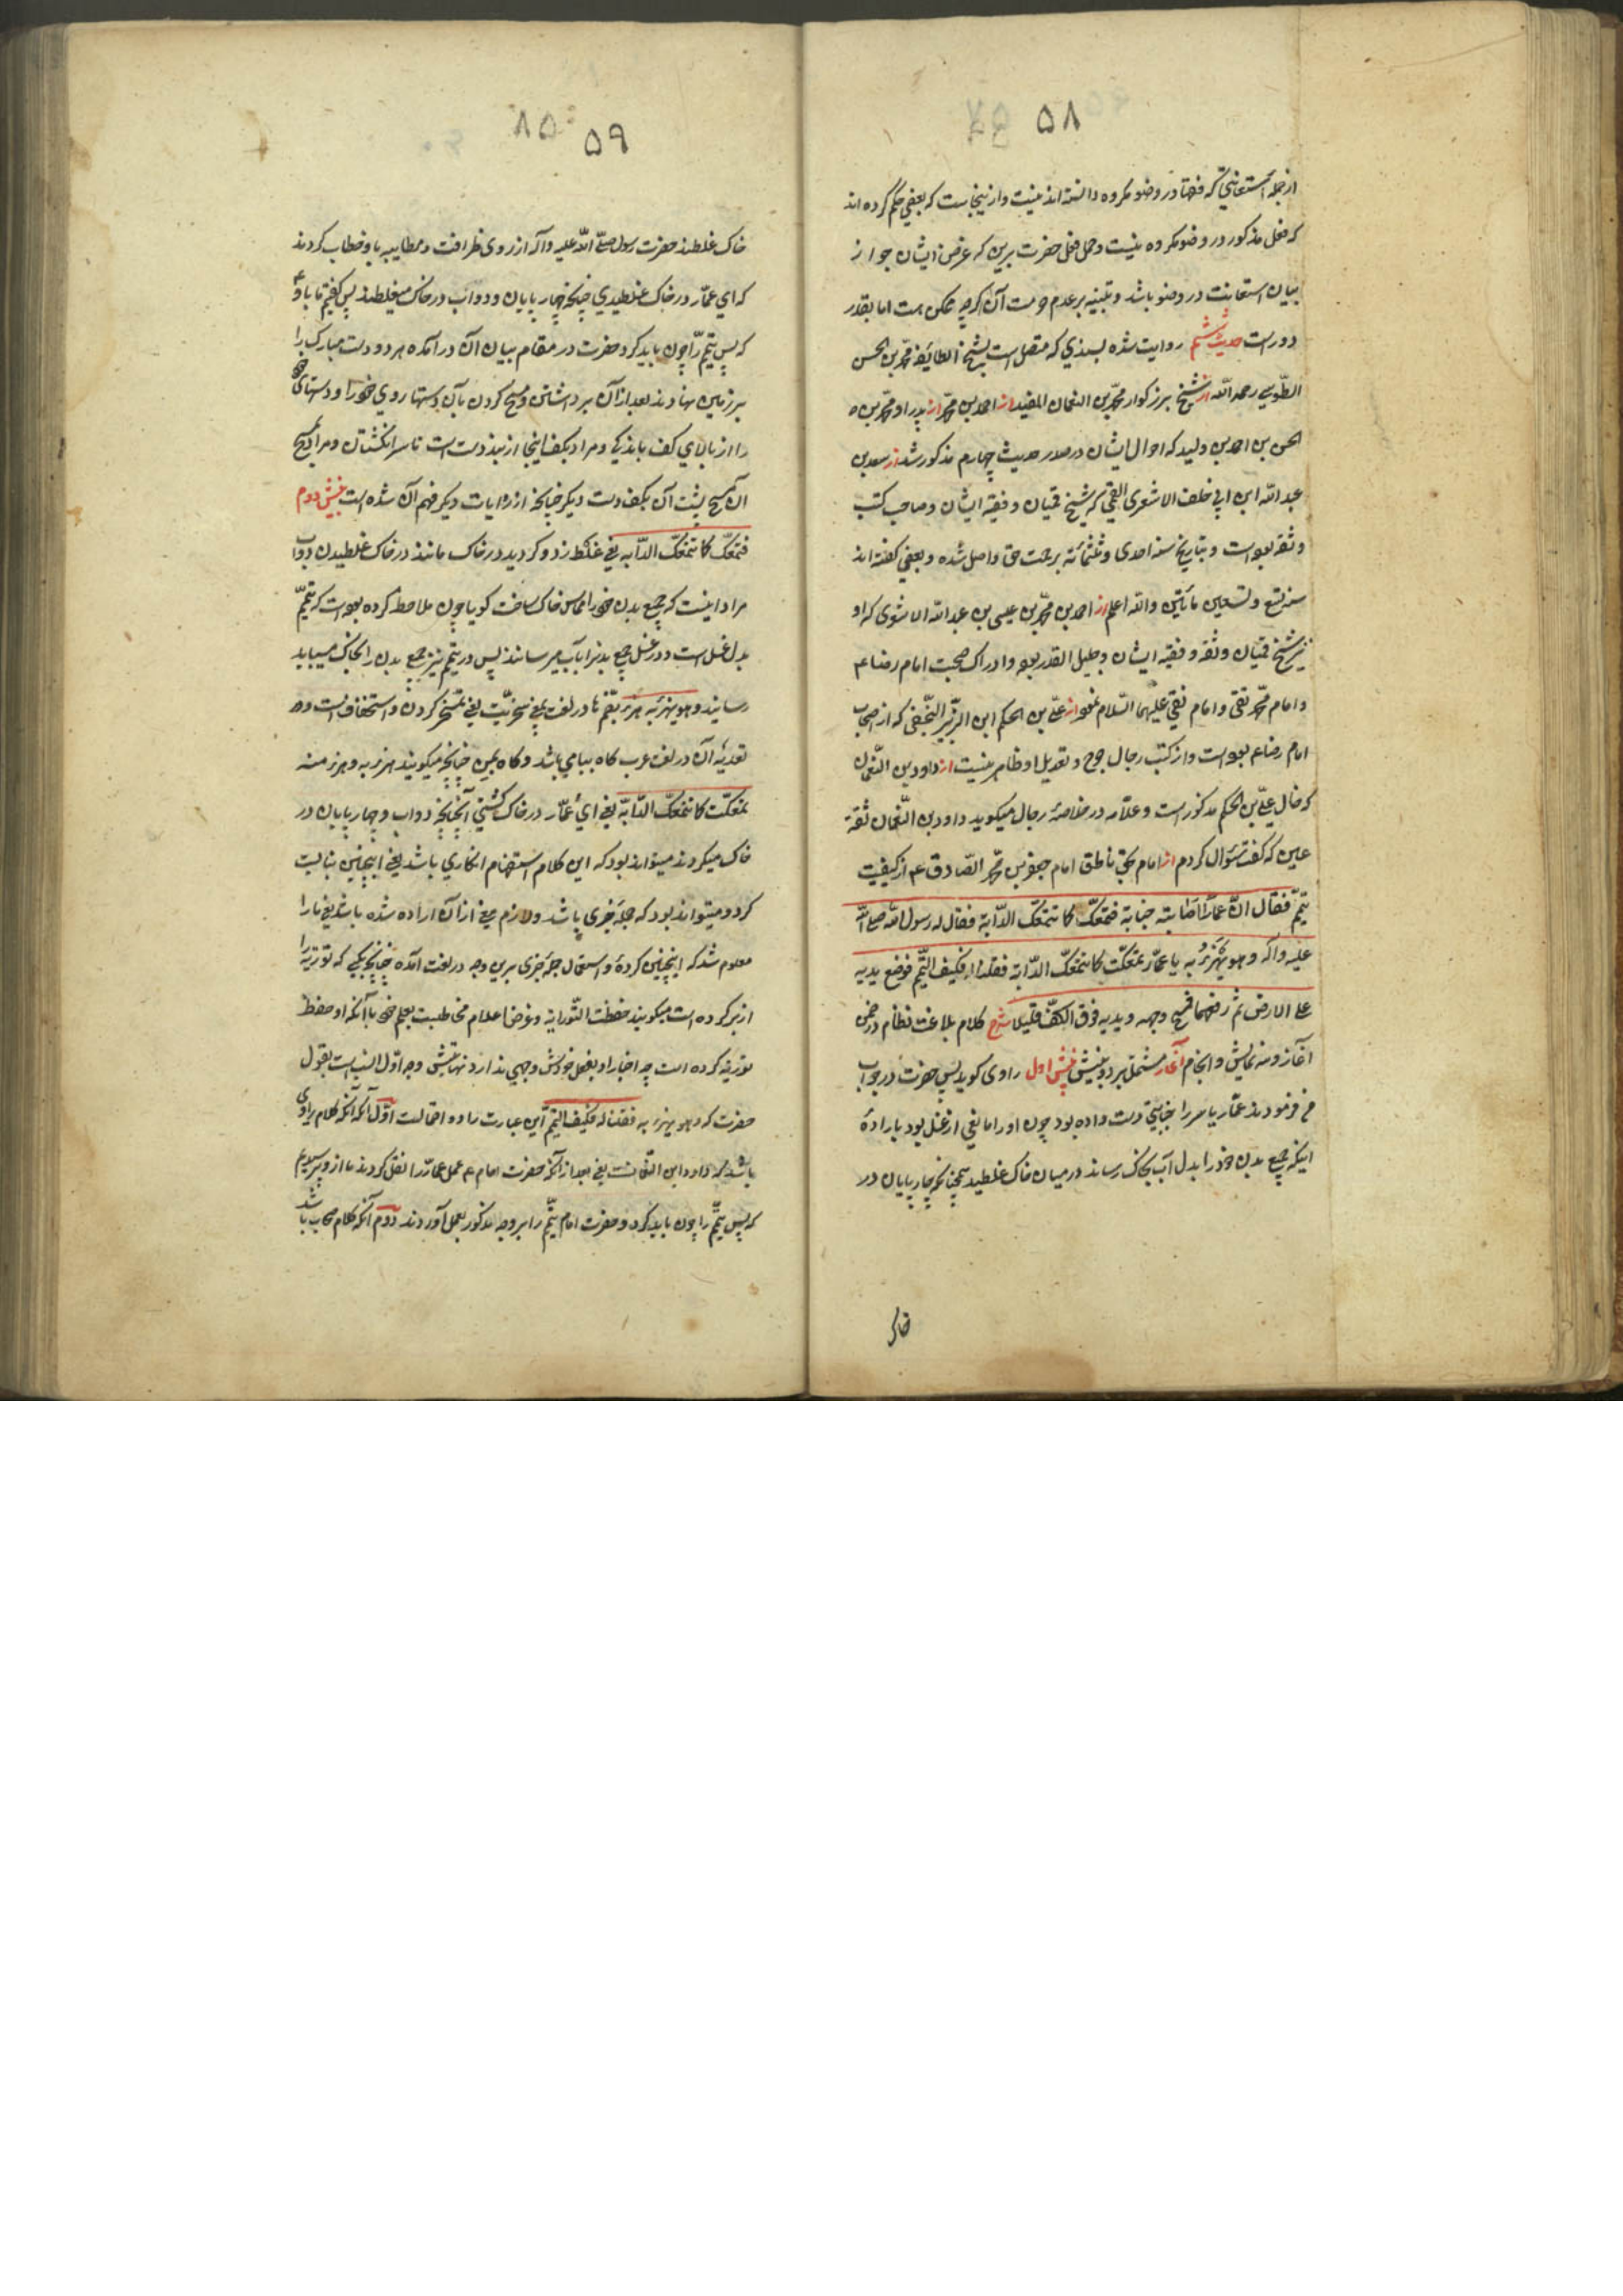 ۵۸
از جمله استعانتی که فقها در وضو مکروه دانسته‌اند نیست و ازینجاست که بعضی حکم کرده‌اند
که فعل مذکور در وضو مکروه نیست و حمل فعل حضرت برین که غرض ایشان جواز
بیان استعانت در وضو باشد و تنبیه بر عدم حرمت آن اگرچه ممکن هست اما بقدر
دورست حدیث ششم روایت شده بسندی که متصل است بشیخ الطائفه محمّد بن الحسن
الطّوسی رحمه اللّه از شیخ بزرکوار محمّد بن النعمان المفید از احمد بن محمّد از پدر او محمّد بن
الحسن بن احمد بن ولید که احوال ایشان در صدر حدیث چهارم مذکور شد از سعد بن
عبد اللّه ابن ابی خلف الاشعری القمی که شیخ قمیان و فقیه ایشان و صاحب کتب
و ثقه بوده است و بتاریخ سنه احدی و ثلثمائه برحمت حق واصل شده و بعضی کفته‌اند
سنه تسع و تسعین مأتین واللّه اعلم از احمد بن محمّد بن عیسی بن عبد اللّه الاشعری که او
نیز شیخ قمیان و ثقه و فقیه ایشان و جلیل القدر بوده و ادراک صحبت امام رضا ع
و امام محمّد تقی و امام نقی علیهما السّلام نموده از علیّ بن الحکم ابن الزّبیر النّخعی که از اصحاب
امام رضا ع بوده است و از کتب رجال جرح و تعدیل او ظاهر نیست از داود بن النّعمان
که خال علیّ بن الحکم مذکور است و علّامه در خلاصهٔ رجال میکوید داود بن النّعمان ثقة
عین که کفت سؤال کردم از امام بحق ناطق امام جعفر بن محمّد الصّادق ع از کیفیت
تیمّم فقال انّ عمّاراً اصابته جنابة فتمعّک کما تتمعّک الدّابة فقال له رسول اللّه صلی اللّه
علیه وآله وهو یهزء به یا عمّار تمعّکت کما تتمعّک الدّابة فقلنا له فکیف التّیمّم فوضع یدیه
علی الارض ثم رفعهما فمسح وجهه ویدیه فوق الکفّ قلیلا شرح کلام بلاغت نظام در ضمن
آغاز و سه نمایش و انجام آغاز مشتمل بر دو بینش بینش اول راوی کوید پس حضرت در جواب
من فرمودند عمّار یاسر را جنابتی دست داده بود چون او را مانعی از غسل بود باراده
اینکه جمیع بدن خود را بدل آب بخاک رساند در میان خاک غلطید همچنانکه چارپایان در
خاک
۸۵ ۵۹
خاک غلطند حضرت رسول صلّی اللّه علیه وآله از روی ظرافت و مطایبه باو خطاب کردند
که ای عمّار در خاک غلطیدی چنانچه چهارپایان و دواب در خاک میغلطند پس کفتیم ما باو
که پس تیمّم را چون باید کرد و حضرت در مقام بیان آن درآمده هر دو دست مبارک را
بر زمین نهادند بعد از آن برداشتن و مسح کردن بآن دستها روی خود را و دستهای خود
را از بالای کف باندکی و مراد بکف اینجا از بند دست است تا سر انکشتان و مراد بمسح
آن مسح پشت آن بکف دست دیکر چنانچه از روایات دیکر فهم آن شده است بینش دوم
فتمعّک کما تتمعّک الدّابه یعنی غلط زد و کردید در خاک مانند در خاک غلطیدن دواب
مراد اینست که جمیع بدن خود را مماس خاک ساخت کویا چون ملاحظه کرده بوده است که تیمّم
بدل غسل است و در غسل جمیع بدنرا بآب میرسانند پس در تیمّم نیز جمیع بدن را بخاک میباید
رسانید وهو یهزء به هزء بضمّ ها در لغت بمعنی سخریّت یعنی تمسخر کردن و استخفاف است و
تعدیهٔ آن در لغت عرب کاه ببا می‌باشد و کاه بمن چنانچه میکویند هزء به و هزء منه
تمعّکت کما تتمعّک الدّابّة یعنی ای عمّار در خاک کشتی آنچنانچه دواب و چهارپایان در
خاک میکردند میتواند بود که این کلام استفهام انکاری باشد یعنی اینچنین نبایست
کرد و میتواند بود که جملهٔ خبری باشد و لازم معنی از آن اراده شده باشد یعنی ما را
معلوم شد که اینچنین کردهٔ و استعمال جملهٔ خبری برین وجه در لغت آمده چنانچه بکسی که توریة را
از بر کرده است میکویند حفظت التّوراة و غرض اعلام مخاطبست بعلم خود بآنکه او حفظ
توریة کرده است چه اخبار او بفعل خودش وجهی ندارد نهایتش وجه اوّل انسب است بقول
حضرت که وهو یهزء به فقلنا له فکیف التیمّم این عبارت را دو احتمالست اوّل آنکه کلام راوی
باشد که داود ابن النّعمانست یعنی بعد از آنکه حضرت امام ع عمل عمّار را نقل کردند ما ازو پرسیدیم
که پس تیمّم را چون باید کرد و حضرت امام تیمّم را بر وجه مذکور بعمل آوردند دوم آنکه کلام صحاب باشد